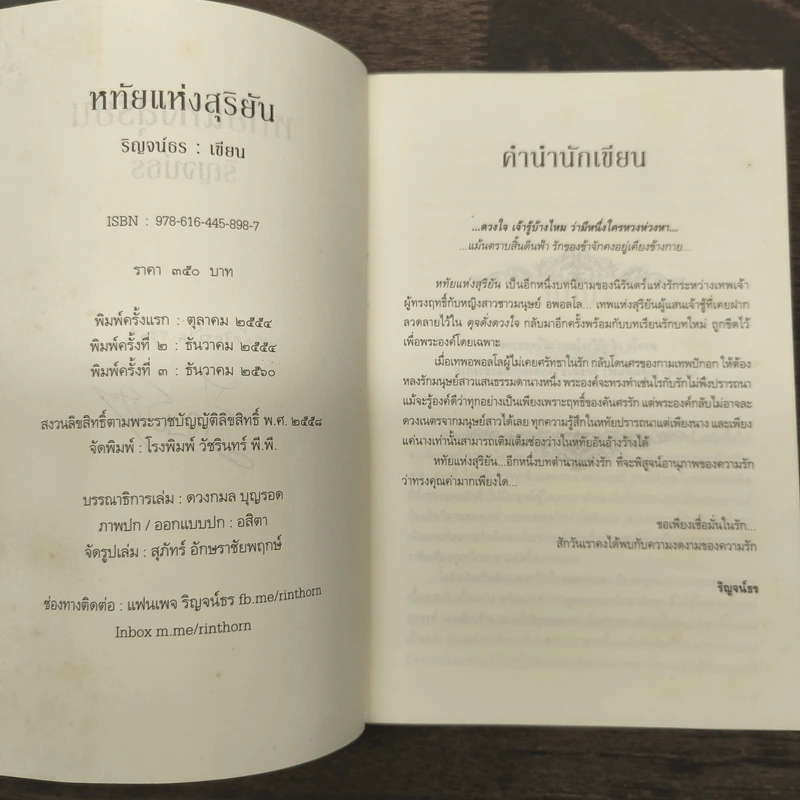 หทัยแห่งสุริยัน
ริญจน์ธร : เขียน
ISBN : 978-616-445-898-7
ราคา ๓๕๐ บาท
พิมพ์ครั้งแรก : ตุลาคม ๒๕๕๔
พิมพ์ครั้งที่ ๒ : ธันวาคม ๒๕๕๔
พิมพ์ครั้งที่ ๓ : ธันวาคม ๒๕๖๐
สงวนลิขสิทธิ์ตามพระราชบัญญัติลิขสิทธิ์ พ.ศ. ๒๕๕๘
จัดพิมพ์ : โรงพิมพ์ วัชรินทร์ พี.พี.
บรรณาธิการเล่ม : ดวงกมล บุญรอด
ภาพปก / ออกแบบปก : อสิตา
จัดรูปเล่ม : สุภัทร์ อักษราชัยพฤกษ์
ช่องทางติดต่อ : แฟนเพจ ริญจน์ธร fb.me/rinthorn
Inbox m.me/rinthorn
คำนำนักเขียน
...ดวงใจ เจ้ารู้บ้างไหม ว่ามีหนึ่งใครหวงห่วงหา...
...แม้นตราบสิ้นดินฟ้า รักของข้าจักคงอยู่เคียงข้างกาย...
หทัยแห่งสุริยัน เป็นอีกหนึ่งบทนิยามของนิรันดร์แห่งรักระหว่างเทพเจ้า
ผู้ทรงฤทธิ์กับหญิงสาวชาวมนุษย์ อพอลโล... เทพแห่งสุริยันผู้แสนเจ้าชู้ที่เคยฝาก
ลวดลายไว้ใน ดุจดั่งดวงใจ กลับมาอีกครั้งพร้อมกับบทเรียนรักบทใหม่ ถูกขีดไว้
เพื่อพระองค์โดยเฉพาะ
เมื่อเทพอพอลโลผู้ไม่เคยศรัทธาในรัก กลับโดนศรของกามเทพปักอก ให้ต้อง
หลงรักมนุษย์สาวแสนธรรมดานางหนึ่ง พระองค์จะทรงทำเช่นไรกับรักไม่พึงปรารถนา
แม้จะรู้องค์ดีว่าทุกอย่างเป็นเพียงเพราะฤทธิ์ของคันศรรัก แต่พระองค์กลับไม่อาจละ
ดวงเนตรจากมนุษย์สาวได้เลย ทุกความรู้สึกในหทัยปรารถนาแต่เพียงนาง และเพียง
แค่นางเท่านั้นสามารถเติมเต็มช่องว่างในหทัยอันอ้างว้างได้
หทัยแห่งสุริยัน...อีกหนึ่งบทตำนานแห่งรัก ที่จะพิสูจน์อานุภาพของความรัก
ว่าทรงคุณค่ามากเพียงใด...
ขอเพียงเชื่อมั่นในรัก...
สักวันเราคงได้พบกับความงดงามของความรัก
ริญจน์ธร